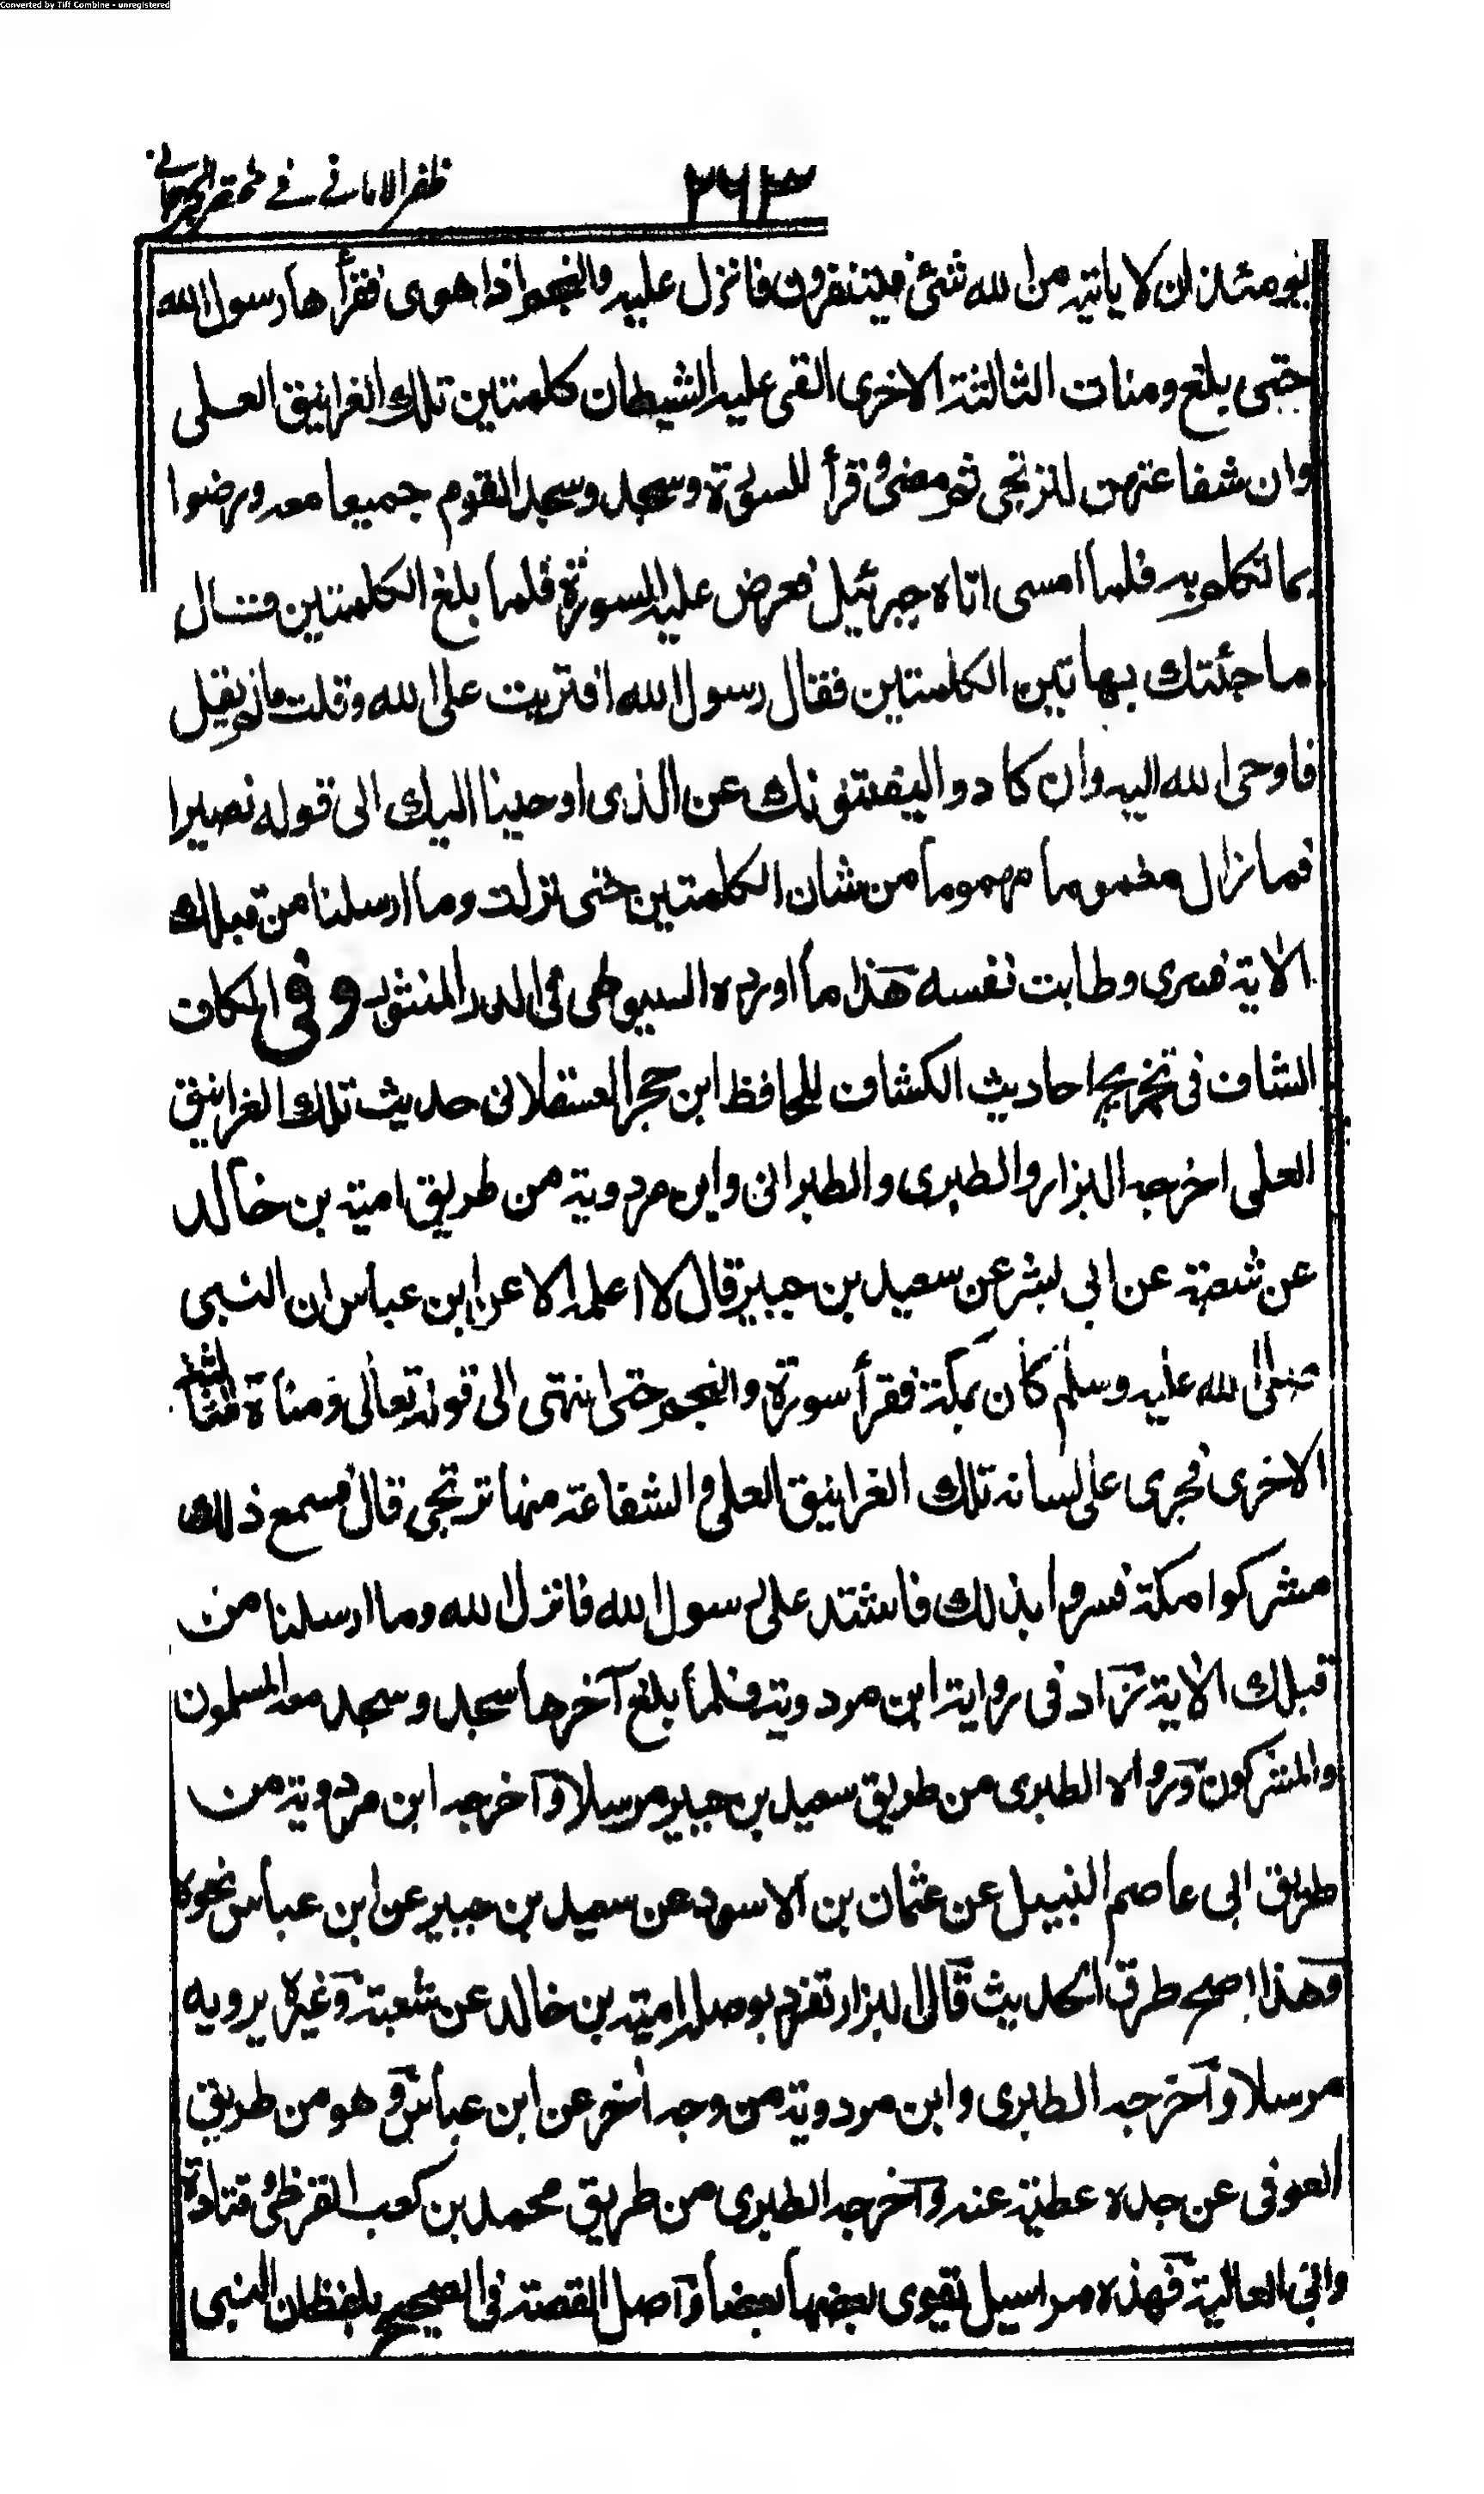 Converted by Tiff Combine - unregistered
ظفر الامانے فے مختصر الجرجانے
٢٦٣
يومئذ ان لا ياتيه من الله شئ فيتنفرون فانزل عليه والنجم اذا هوى فقرأها رسول الله
حتى بلغ ومنات الثالثة الاخرى القى عليه الشيطان كلمتين تلك الغرانيق العلى
وان شفاعتهن لترتجى ثم مضى وقرأ السورة وسجد وسجد القوم جميعا معه ورضوا
بما تكلم به فلما امسى اتاه جبرئيل فعرض عليه السورة فلما بلغ الكلمتين قال
ما جئتك بهاتين الكلمتين فقال رسول الله افتريت على الله وقلت ما لم يقل
فاوحى الله اليه وان كادوا ليفتنونك عن الذى اوحينا اليك الى قوله نصيرا
فما زال مغموما مهموما من شان الكلمتين حتى نزلت وما ارسلنا من قبلك
الاية فسرى وطابت نفسه هذا ما اورده السيوطى فى الدر المنثور وفى الكاف
الشاف فى تخريج احاديث الكشاف للحافظ ابن حجر العسقلانى حديث تلك الغرانيق
العلى اخرجه البزار والطبرى والطبرانى وابن مردوية من طريق امية بن خالد
عن شعبة عن ابى بشر عن سعيد بن جبير قال لا اعلمه الا عن ابن عباس ان النبى
صلى الله عليه وسلم كان بمكة فقرأ سورة والنجم حتى انتهى الى قوله تعالى ومناة الثالثة
الاخرى فجرى على لسانه تلك الغرانيق العلى والشفاعة منها ترتجى قال فسمع ذلك
مشركوا مكة فسروا بذلك فاشتد على رسول الله فانزل الله وما ارسلنا من
قبلك الاية زاد فى رواية ابن مردوية فلما بلغ آخرها سجد وسجد معه المسلمون
والمشركون ورواه الطبرى من طريق سعيد بن جبير مرسلا وآخرجه ابن مردوية من
طريق ابى عاصم النبيل عن عثمان بن الاسود عن سعيد بن جبير عن ابن عباس نحوه
وهذا اصح طرق الحديث قال البزار تفرد بوصله امية بن خالد عن شعبة وغيره يرويه
مرسلا وآخرجه الطبرى وابن مردوية من وجه اخر عن ابن عباس وهو من طريق
العوفى عن جده عطية عنه وآخرجه الطبرى من طريق محمد بن كعب القرظى وقتادة
وابى العالية فهذه مراسيل تقوى بعضها بعضا وآصل القصة فى الصحيح بلفظ ان النبى